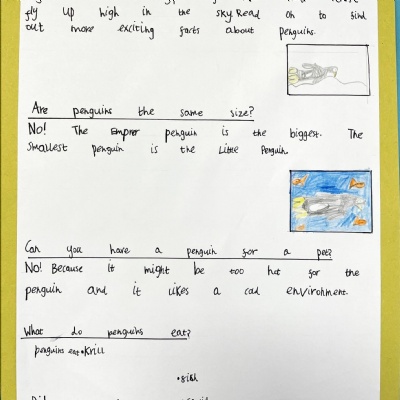 fly up high in the sky. Read on to find
out more exciting facts about penguins.
Are penguins the same size?
No! The Emprer penguin is the biggest. The
smallest penguin is the Little Penguin.
Can you have a penguin for a pet?
No! Because it might be too hot for the
penguin and it likes a cad environment.
What do penguins eat?
penguins eat •Krill
•fish